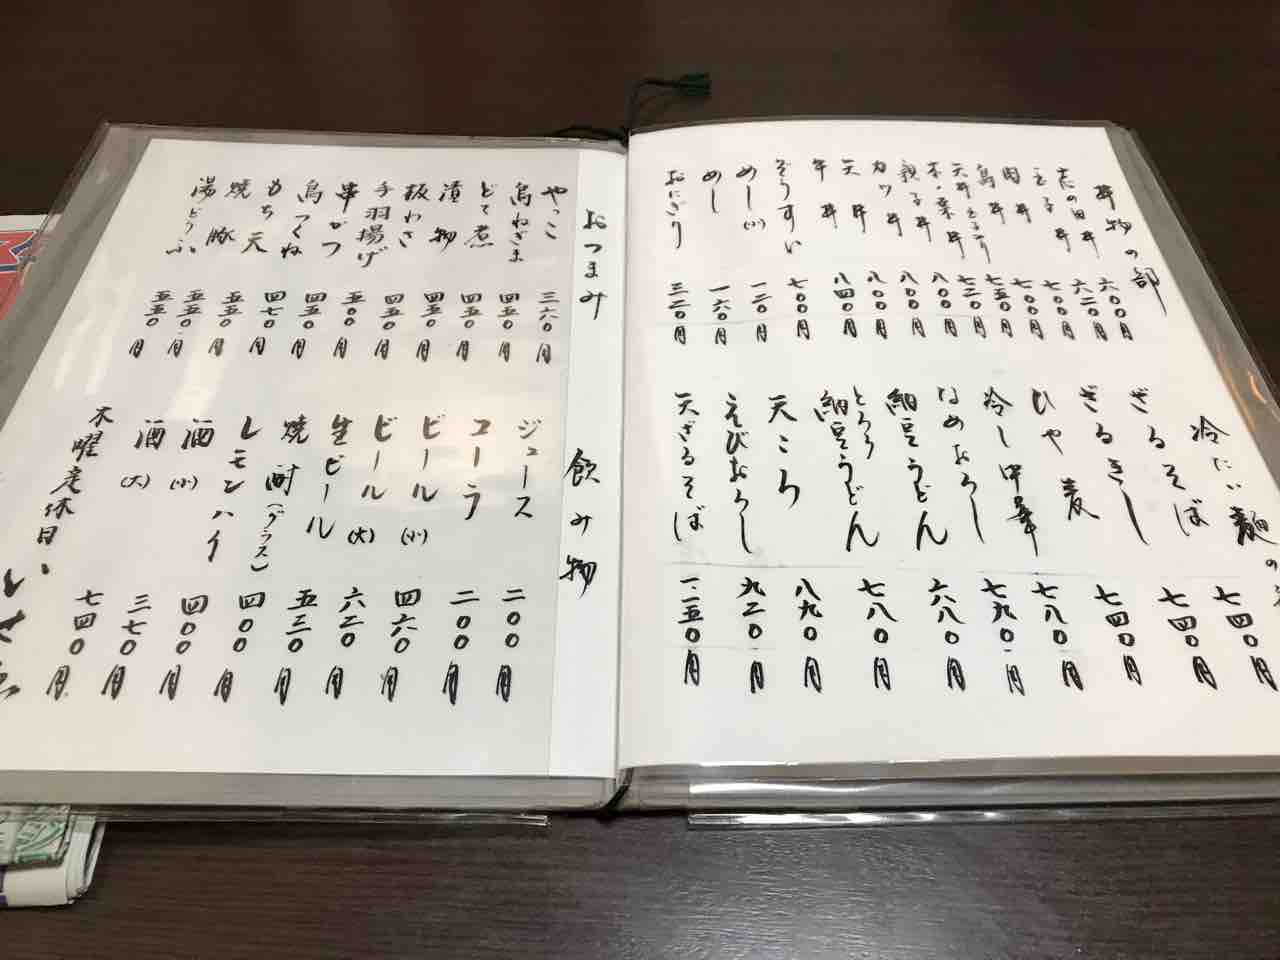 丼物の部
志の田丼 六〇〇円
玉子丼 六二〇円
肉丼 七〇〇円
鳥丼 七〇〇円
天丼玉子入り 七五〇円
木の葉丼 七三〇円
親子丼 八〇〇円
カツ丼 八〇〇円
天丼 八〇〇円
牛丼 八四〇円
ぞうすい 七〇〇円
めし(小) 一二〇円
めし 一六〇円
おにぎり 三二〇円
冷たい麺の
ざるそば 七四〇円
ざるきし 七四〇円
ひや麦 七四〇円
冷し中華 七八〇円
なめおろし 七九〇円
納豆うどん 六八〇円
とろろ納豆うどん 七八〇円
天ころ 八九〇円
えびおろし 九二〇円
天ざるそば 一二五〇円
おつまみ
やっこ 三六〇円
鳥ねぎま 四五〇円
どて煮 四五〇円
漬物 四五〇円
板わさ 四五〇円
手羽揚げ 五〇〇円
串かつ 四五〇円
鳥つくね 四七〇円
もち天 五五〇円
焼豚 五五〇円
湯どうふ 五五〇円
飲み物
ジュース 二〇〇円
コーラ 二〇〇円
ビール(小) 四六〇円
ビール(大) 六二〇円
生ビール 五三〇円
焼酎(グラス) 四〇〇円
レモンハイ 四〇〇円
酒(小) 三七〇円
酒(大) 七四〇円
木曜定休日